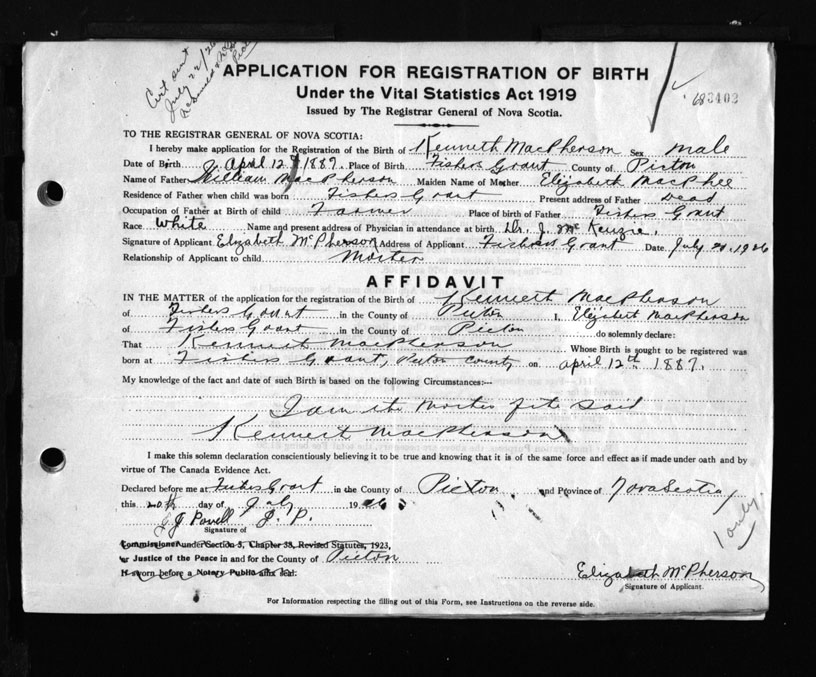 Cert sent
July 22/26
APPLICATION FOR REGISTRATION OF BIRTH
Under the Vital Statistics Act 1919
Issued by The Registrar General of Nova Scotia.
TO THE REGISTRAR GENERAL OF NOVA SCOTIA:
I hereby make application for the Registration of the Birth of Kenneth MacPherson Sex male
Date of Birth April 12th 1887. Place of Birth Fishers Grant County of Pictou
Name of Father William MacPherson Maiden Name of Mother Elizabeth MacPhee
Residence of Father when child was born Fishers Grant Present address of Father Dead
Occupation of Father at Birth of child Farmer Place of birth of Father Fishers Grant
Race White Name and present address of Physician in attendance at birth Dr. J. McKenzie.
Signature of Applicant Elizabeth McPherson Address of Applicant Fishers Grant Date July 20, 1926
Relationship of Applicant to child Mother
AFFIDAVIT
IN THE MATTER of the application for the registration of the Birth of Kenneth MacPherson
of Fishers Grant in the County of Pictou I, Elizabeth MacPherson
of Fishers Grant in the County of Pictou do solemnly declare:
That Kenneth MacPherson Whose Birth is sought to be registered was
born at Fishers Grant, Pictou County on April 12th 1887.
My knowledge of the fact and date of such Birth is based on the following Circumstances:—
I am the Mother of the said
Kenneth MacPherson
I make this solemn declaration conscientiously believing it to be true and knowing that it is of the same force and effect as if made under oath and by
virtue of The Canada Evidence Act.
Declared before me at Fishers Grant in the County of Pictou and Province of Nova Scotia
this 20th day of July 1926
J J Powell J. P.
Signature of
Commissioner under Section 5, Chapter 38, Revised Statutes, 1923,
or Justice of the Peace in and for the County of Pictou
If sworn before a Notary Public affix seal.
1 only.
Elizabeth McPherson
Signature of Applicant.
For Information respecting the filling out of this Form, see Instructions on the reverse side.